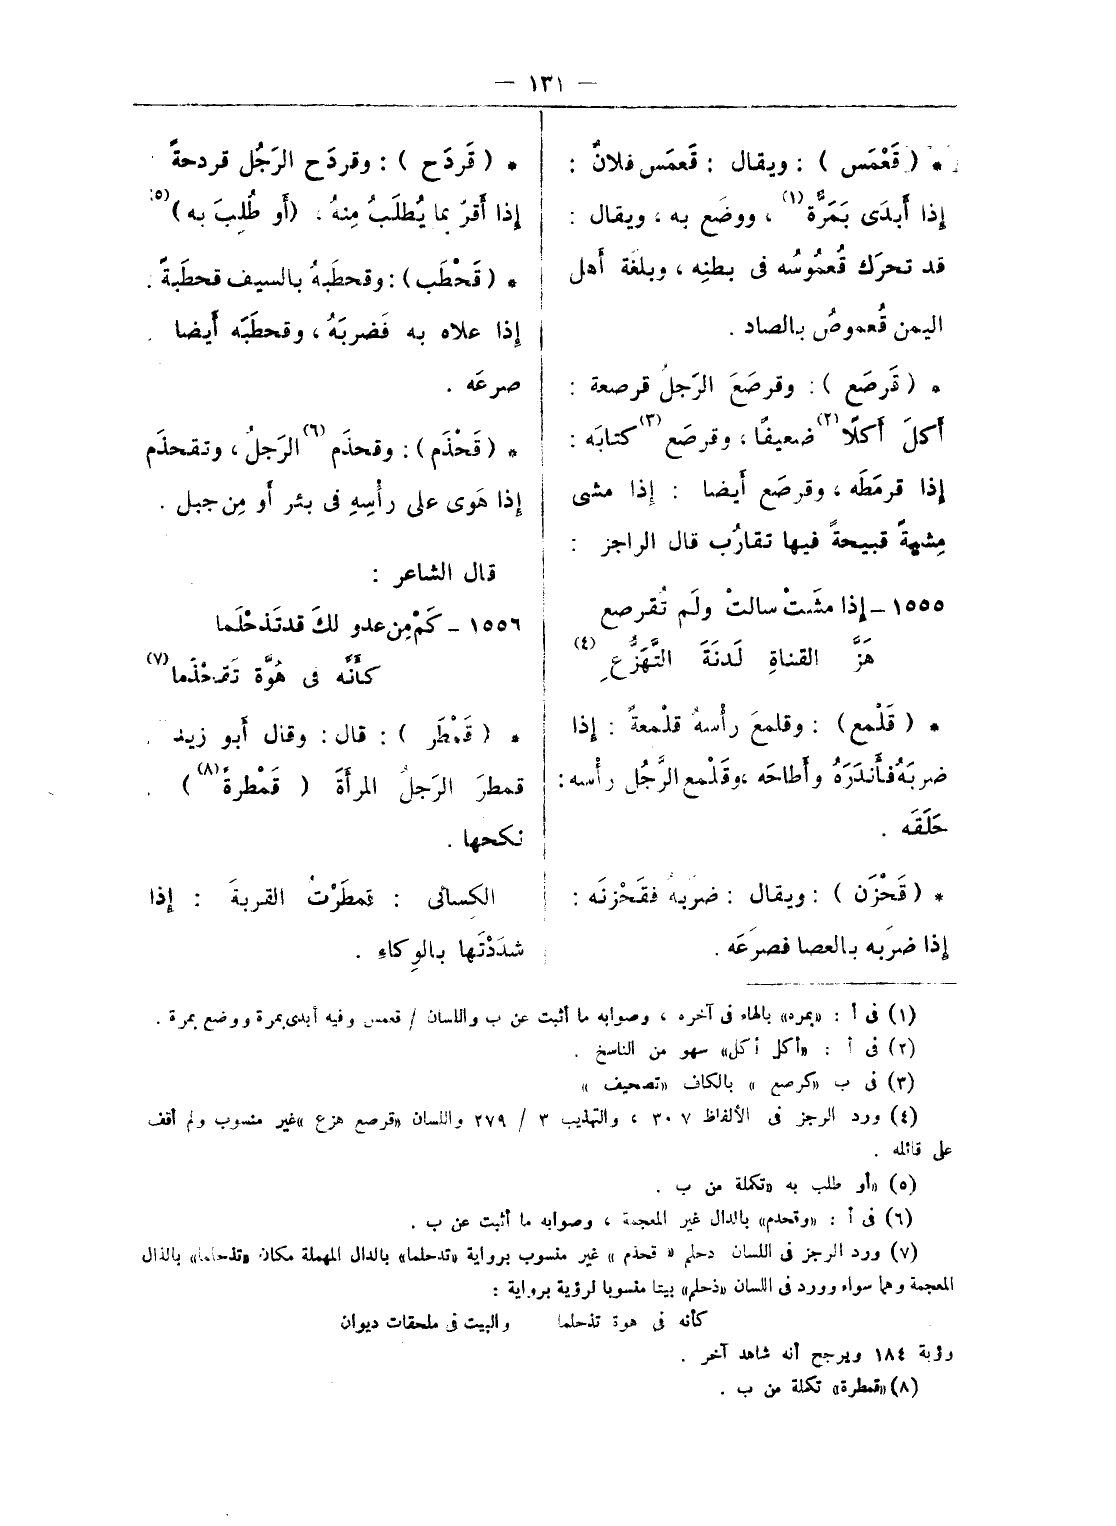 — ١٣١ —
* ( قَعْمَس ) : ويقال : قَعمَس فلانٌ :
إذا أَبدَى بَمَرَّة(١) ، ووضَع به ، ويقال :
قد تحرَك قُعمُوسُه فى بطنِه ، وبلغَة أَهل
اليمن قُعموصُ بالصاد .
* ( قَرصَع ) : وقرصَعَ الرَجلُ قرصعة :
أَكلَ أَكلًا(٢) ضعيفًا ، وقرصَع(٣) كتابَه :
إذا قرمَطَه ، وقرصَع أَيضا : إذا مشى
مِشيةً قبيحةً فيها تقارُب قال الراجز :
١٥٥٥ ــ إذا مشَتْ سالتْ ولَم تُقرصع
هَزَّ القناةِ لَدنَةَ التَّهَزُّعِ(٤)
* ( قَلْمع ) : وقلمعَ رأْسهُ قلْمعةً : إذا
ضربَهُ فأَندَرَهُ وأَطاحَه ، وقَلْمع الرَّجُل رأْسه :
حَلَقَه .
* ( قَحْزَن ) : ويقال : ضرَبهُ فقَحْزنَه :
إذا ضرَبه بالعصا فصرَعَه .
* ( قَردَح ) : وقردَح الرَجُل قردحةً
إذا أَقرّ بما يُطلَبُ مِنهُ ، (أَو طُلِبَ به)(٥)
* ( قَحْطَب ) : وقحطَبهُ بالسيف قحطَبةً :
إذا علاه به فَضربَهُ ، وقحطَبَه أَيضا
صرعَه .
* ( قَحْذَم ) : وقحذَم(٦) الرَجلُ ، وتقحذَم
إذا هَوى على رأْسِهِ فى بئر أَو مِن جبل .
قال الشاعر :
١٥٥٦ ــ كَمْ مِن عدو لكَ قد تَذحْلَما
كأَنَّه فى هُوَّة تَقحْذَما(٧)
* ( قَمْطَر ) : قال : وقال أَبو زيد
قمطرَ الرَجلُ المرأَةَ ( قَمْطرةً(٨) ) .
نكحها .
الكسائى : قمطَرْتُ القربةَ : إذا
شدَدْتَها بالوِكاءِ .
(١) فى أ : «بمره» بالهاء فى آخره ، وصوابه ما أثبت عن ب واللسان / قعمس وفيه أبدى بمرة ووضع بمرة .
(٢) فى أ : «أكل أكل» سهو من الناسخ .
(٣) فى ب «كرصع » بالكاف «تصحيف »
(٤) ورد الرجز فى الألفاظ ٣٠٧ ، والتهذيب ٣ / ٢٧٩ واللسان «قرصع هزع »غير منسوب ولم أقف
على قائله .
(٥) «أو طلب به «تكملة من ب .
(٦) فى أ : «وقحدم» بالدال غير المعجمة ، وصوابه ما أثبت عن ب .
(٧) ورد الرجز فى اللسان دحلم « قحذم » غير منسوب برواية «تدحلما» بالدال المهملة مكان «تذحلما» بالذال
المعجمة وهما سواء وورد فى اللسان «ذحلم» بيتا منسوبا لرؤية برواية :
كأنه فى هوة تذحلما والبيت فى ملحقات ديوان
رؤبة ١٨٤ ويرجح أنه شاهد آخر .
(٨) «قمطرة» تكملة من ب .